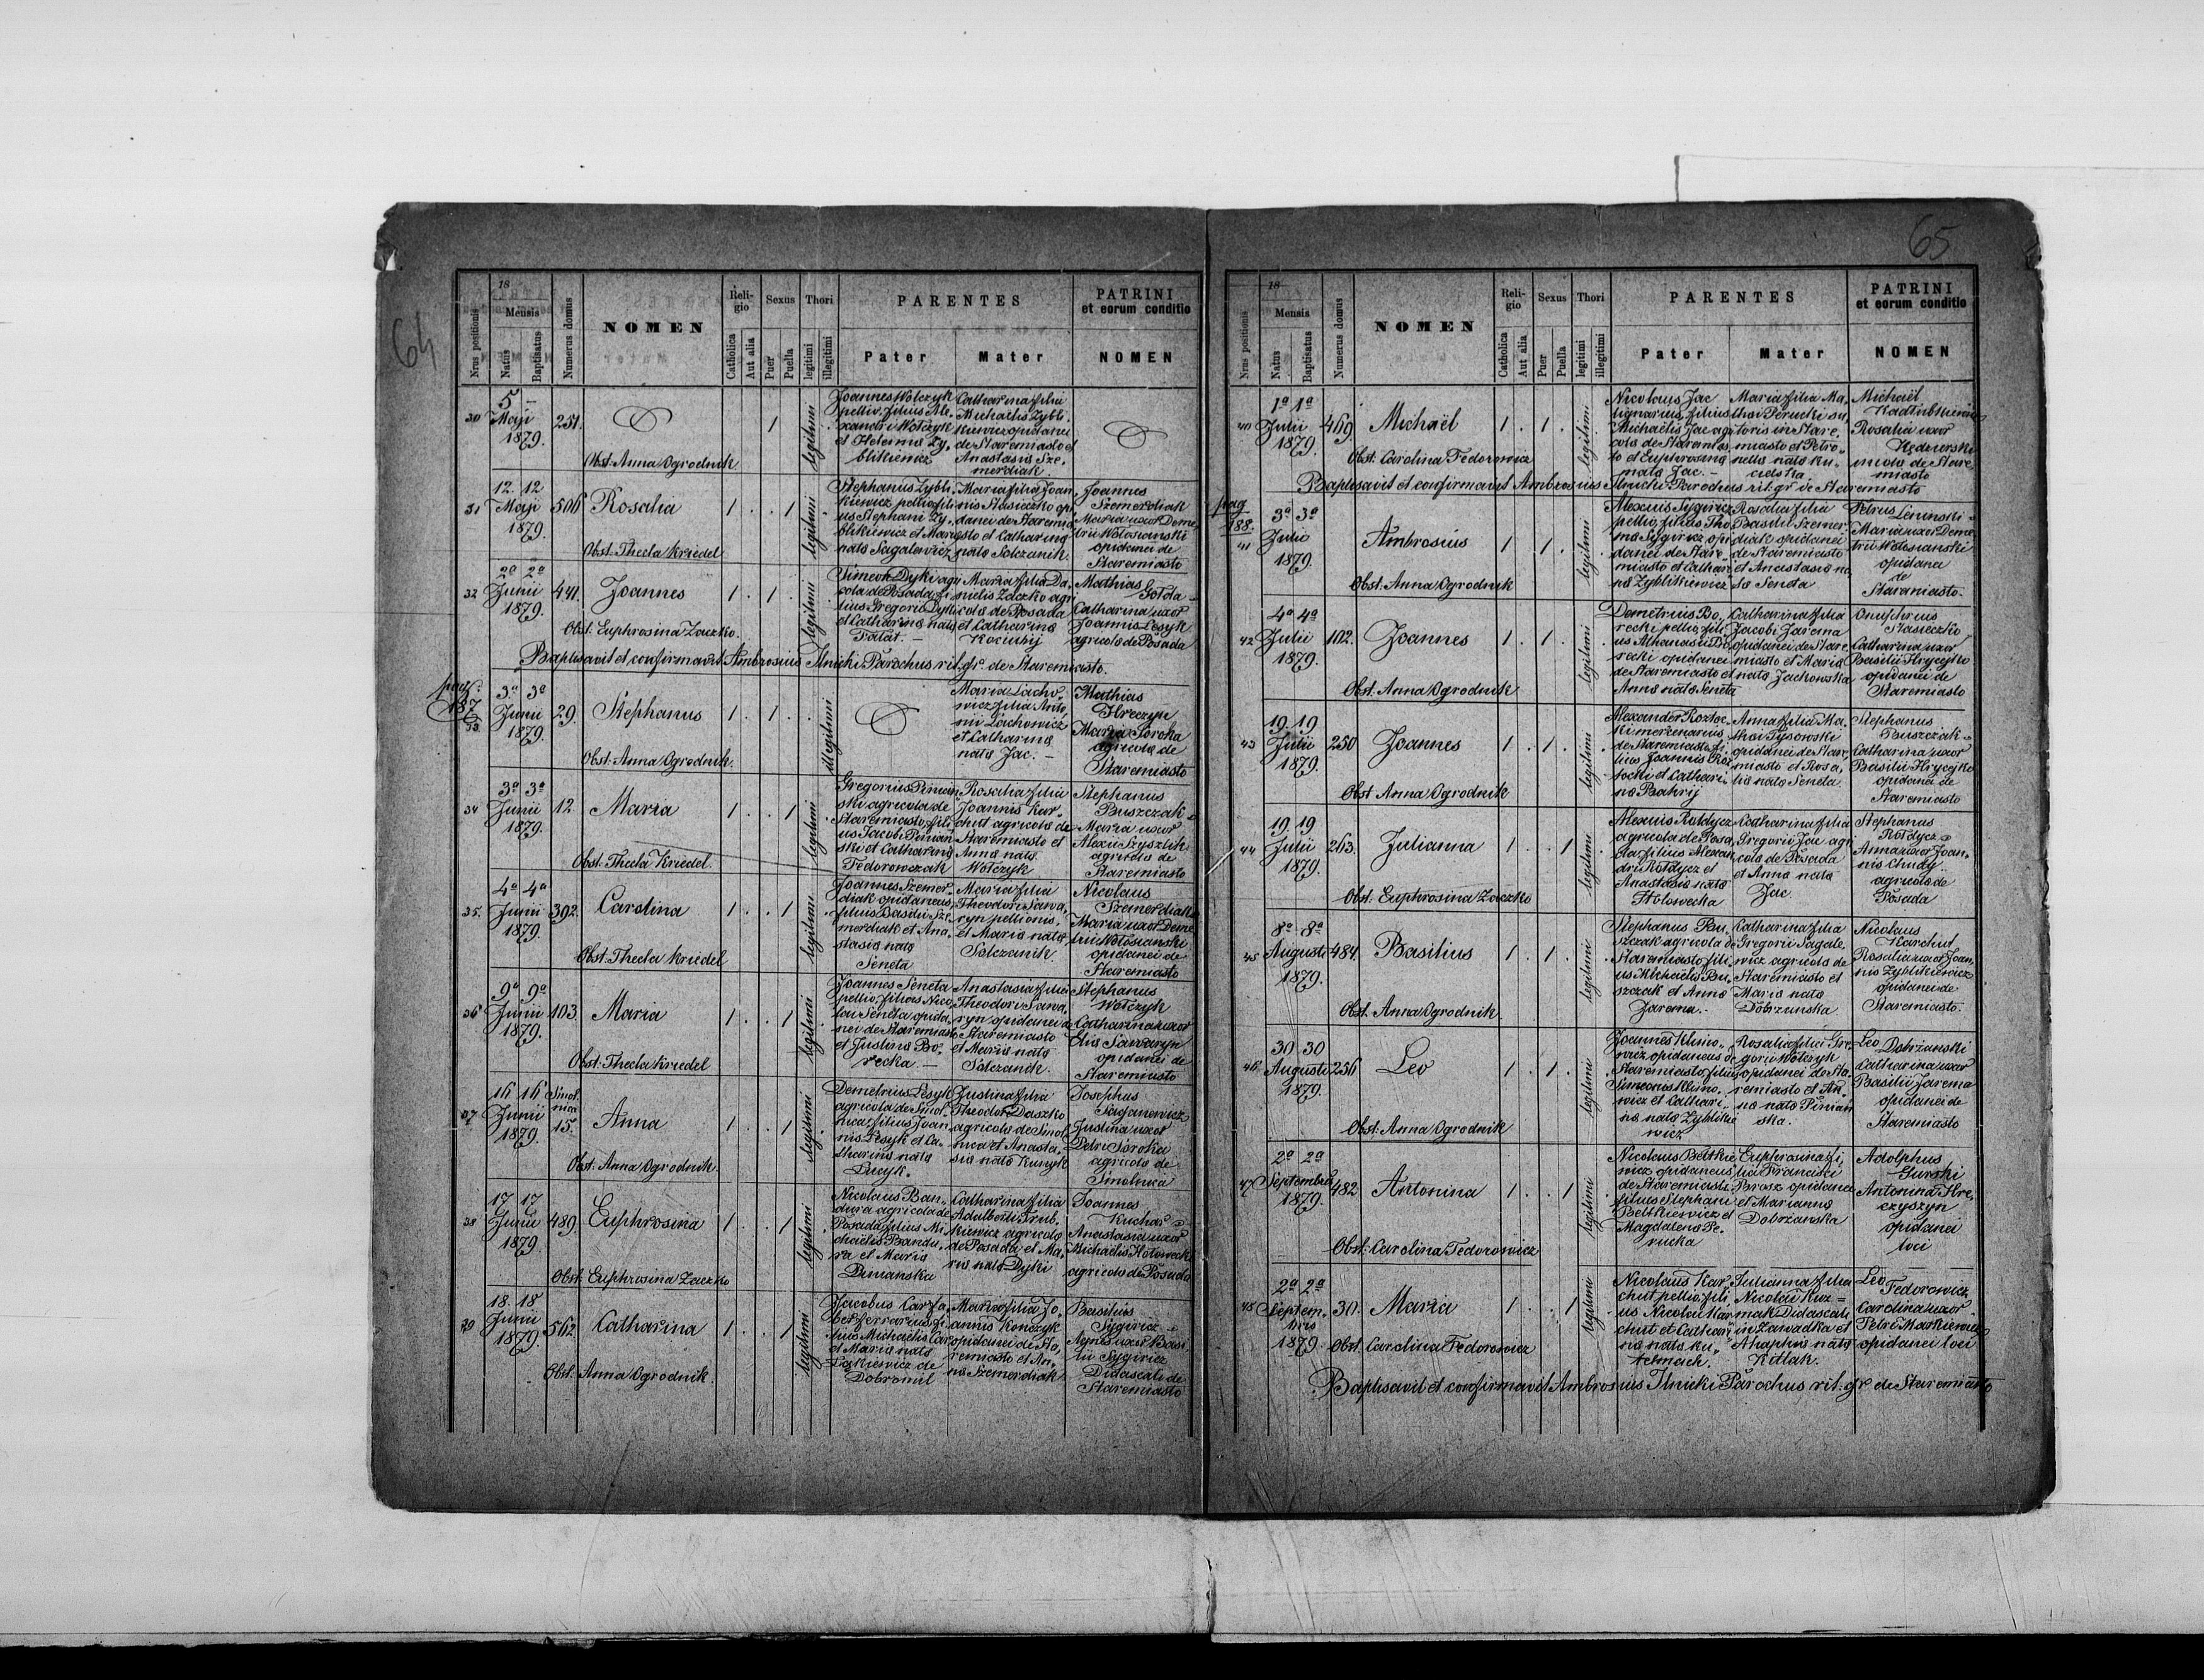 64
18
Mensis
Nrus positionis
Natus
Baptisatus
Numerus domus
NOMEN
Reli-
gio
Catholica
Aut alia
Sexus
Puer
Puella
Thori
legitimi
illegitimi
PARENTES
Pater
Mater
PATRINI
et eorum conditio
NOMEN
30
5 –
Maji
1879.
251.
1
legitimi
Joannes Wołczyk
pellio, filius Ale-
xandri Wołczyk
et Helenna Zy-
blikiewicz
Catharina filia
Michaelis Zybli-
kiewicz opidanei
de Staremiasto et
Anastasia Sze-
merdiak
Obst. Anna Ogrodnik
31
12. 12
Maji
1879.
506
Rosalia
1 . . 1
legitimi
Stephanus Zybli-
kiewicz pellio fili-
us Stephani Zy-
blikiewicz et Maria
nata Sagalewicz
Maria filia Joan-
nis Stasieczko opi-
danei de Staremia-
sto et Catharina
nata Solczanik
Joannes
Szemerdiak
Maria uxor Deme-
trii Wołosianski
opidanei de
Staremiasto
Obst. Thecla Kriedel
32
2a 2a
Junii
1879.
441.
Joannes
1 . 1 .
legitimi
Simeon Dyki agri
cola de Posada fi-
lius Gregorii Dyki
et Catharina nata
Fałat. –
Maria filia Da-
nielis Zaczko agri
cola de Posada
et Catharina
Kociubij
Mathias
Gołda
Catharina uxor
Joannis Lesyk
agricola de Posada
Obst. Euphrosina Zaczko.
Baptisavit et confirmavit Ambrosius Ilnicki Parochus rit. gr. de Staremiasto.
pag:
187
33.
3a 3a
Junii
1879.
29.
Stephanus
1 . 1 .
illegitimi
Maria Lacho-
wicz filia Anto-
nii Lachowicz
et Catharina
nata Jac. –
Mathias
Hreczyn
Maria Soroka
agricola de
Staremiasto
Obst. Anna Ogrodnik.
34
3a 3a
Junii
1879.
12.
Maria
1 . . 1
legitimi
Gregorius Pinian
ski agricola de
Staremiasto, fili
us Jacobi Pinian
ski et Catharina
Fedorowczak
Rosalia filia
Joannis Kar-
chut agricola de
Staremiasto et
Anna nata
Wołczyk
Stephanus
Buszczak
Maria uxor
Alexii Szyszlik
agricola de
Staremiasto
Obst. Thecla Kriedel.
35.
4a 4a
Junii
1879.
392.
Carolina
1 . . 1
legitimi
Joannes Szemer-
diak opidaneus,
filius Basilii Sze-
merdiak et Ana-
stasia nata
Seneta
Maria filia
Theodori Sawa-
ryn pellionis.
et Maria nata
Solczanik.
Nicolaus
Szemerdiak
Maria uxor Deme
trii Wołosianski
opidanei de
Staremiasto
Obst. Thecla Kriedel
36
9a 9a
Junii
1879.
103.
Maria
1 . . 1
legitimi
Joannes Seneta
pellio, filius Nico-
lai Seneta opida-
nei de Staremiasto
et Justina Bo-
recka. –
Anastasia filia
Theodori Sawa-
ryn opidanei de
Staremiasto
et Maria nata
Solczanik.
Stephanus
Wołczyk
Catharina uxor
Elia Sawaryn
opidanei de
Staremiasto
Obst. Thecla Kriedel
37
16 16
Junii
1879.
Smol-
nica
15.
Anna
1 . . 1
legitimi
Demetrius Lesyk
agricola de Smol-
nica, filius Joan-
nis Lesyk et Ca-
tharina nata
Lucyk.
Justina filia
Theodori Daszko
agricola de Smol-
nica et Anasta-
sia nata Kunyk
Josephus
Safianowicz
Justina uxor
Petri Soroka
agricola de
Smolnica
Obst. Anna Ogrodnik.
38
17 17
Junii
1879
489.
Euphrosina
1 . . 1
legitimi
Nicolaus Ban-
dura agricola de
Posada filius Mi-
chaelis Bandu-
ra et Maria
Dmanska
Catharina filia
Adalberti Trub-
kiewicz agricola
de Posada et Ma-
ria nata Dyki
Joannes
Kuchar
Anastasia uxor
Michaelis Hołowecki
agricola de Posada
Obst. Euphrosina Zaczko
39
18. 18
Junii
1879.
562.
Catharina
1 . . 1
legitimi
Maria filia Jo-
annis Konczyk
opidanei de Sta-
remiasto et An-
na Szemerdiak
Basilius
Sygiricz
Agnes uxor Basi
lii Sygiricz
Didascali de
Staremiasto
Obst. Anna Ogrodnik.
65
18
Mensis
Nrus positionis
Natus
Baptisatus
Numerus domus
NOMEN
Reli-
gio
Catholica
Aut alia
Sexus
Puer
Puella
Thori
legitimi
illegitimi
PARENTES
Pater
Mater
PATRINI
et eorum conditio
NOMEN
40
1a 1a
Julii
1879.
469
Michaël
1 . 1 .
legitimi
Nicolaus Jac
lignarius, filius
Michaelis Jac agri
cola de Staremias
to et Euphrosina
nata Jac. –
Maria filia Ma-
thei Perucki su-
toris in Stare-
miasto et Petro-
nella nata Ru-
Michaël
Kadłubkiewicz
Rosalia uxor
incola de Stare
miasto
Obst. Carolina Fedorowicz
Baptisavit et confirmavit Ambrosius Ilnicki Parochus rit. gr. de Staremiasto
pag
188.
41
3a 3a
Julii
1879.
Ambrosius
1 . 1 .
legitimi
Alexius Sygiricz
pellio, filius Tho-
ma Sygiricz opi
danei de Stare-
miasto et Cathari
na Zyblikiewicz
Rosalia filia
Basilii Szemer-
diak opidanei
de Staremiasto
et Anastasia na
ta Seneta
Petrus
Leninski
Maria uxor Deme
trii Wołosianski
opidanei
de
Staremiasto.
Obst. Anna Ogrodnik
42
4a 4a
Julii
1879.
102.
Joannes
1 . 1 .
legitimi
Demetrius Bo-
recki pellio, fili
us Athanasii Bo-
recki opidanei
de Staremiasto et
Anna nata Seneta
Catharina filia
Jacobi Jarema
opidanei de Stare-
miasto et Maria
nata Jachowska
Onuphrius
Stasieczko
Catharina uxor
Basilii Hrycyko
opidanei de
Staremiasto
Obst. Anna Ogrodnik
43
19. 19
Julii
1879.
250
Joannes
1 . 1 .
legitimi
Alexander Roztoc-
ki mercenarius
de Staremiasto fi-
lius Joannis Roz
tocki et Cathari-
na Bahrij
Anna filia Ma-
thei Tysowski
opidanei de Stare-
miasto et Rosa-
lia nata Seneta.
Stephanus
Buszczak
Catharina uxor
Basilii Hrycyko
opidanei de
Staremiasto
Obst Anna Ogrodnik
44
19. 19
Julii
1879.
263.
Julianna
1 . . 1
legitimi
Alexius Rołdycz
agricola de Posa
da, filius Alexan
dri Rołdycz et
Anastasia nata
Hołowecka
Catharina filia
Gregorii Jac agri
cola de Posada
et Anna nata
Jac.
Stephanus
Rołdycz
Anna uxor Joan-
nis Chudy
agricola de
Posada
Obst. Euphrosina Zaczko
45
8a 8a
Augusti
1879.
484.
Basilius
1 . 1 .
legitimi
Stephanus Bu-
szczak agricola de
Staremiasto, fili-
us Michaelis Bu-
szczak et Anna
Jarema.
Catharina filia
Gregorii Sagale-
wicz agricola de
Staremiasto et
Maria nata
Dobrzanska
Nicolaus
Karchut
Rosalia uxor Joan-
nis Zyblikiewicz
opidanei de
Staremiasto.
Obst. Anna Ogrodnik
46.
30 30
Augusti
1879.
256
Leo
1 . 1 .
legitimi
Joannes Klimo-
wicz opidaneus de
Staremiasto, filius
Simeonis Klimo-
wicz et Cathari-
na nata Zyblikie
wicz
Rosalia filia Gre-
gorii Wołczyk
opidanei de Sta-
remiasto et An-
na nata Pinian
ska.
Leo
Dobrzanski
Catharina uxor
Basilii Jarema
opidanei de
Staremiasto
Obst. Anna Ogrodnik
47
2a 2a
Septembris
1879.
482.
Antonina
1 . . 1
legitimi
Nicolaus Beltkie
wicz opidaneus
de Staremiasto
filius Stephani
Beltkiewicz et
Magdalena Pe-
rucka
Euphrosina fi-
lia Francisci
Brosz opidanei
et Marianna
Dobrzanska
Adolphus
Gurski
Antonina Hre-
czyszyn
opidanei
loci
Obst: Carolina Fedorowicz
48
2a 2a
Septem-
bris
1879.
30.
Maria
1 . . 1
legitimi
Nicolaus Kar-
chut pellio, fili
us Nicolai Kar
chut et Cathari
na nata
Julianna filia
Nicolai Kuz=
mak Didascali
in Zawadka et
Ahaphia nata
Kitlak.
Leo
Fedorowicz
Carolina uxor
Petri Markiewicz
opidanei loci
Obst. Carolina Fedorowicz
Baptisavit et confirmavit Ambrosius Ilnicki Parochus rit. gr. de Staremiasto